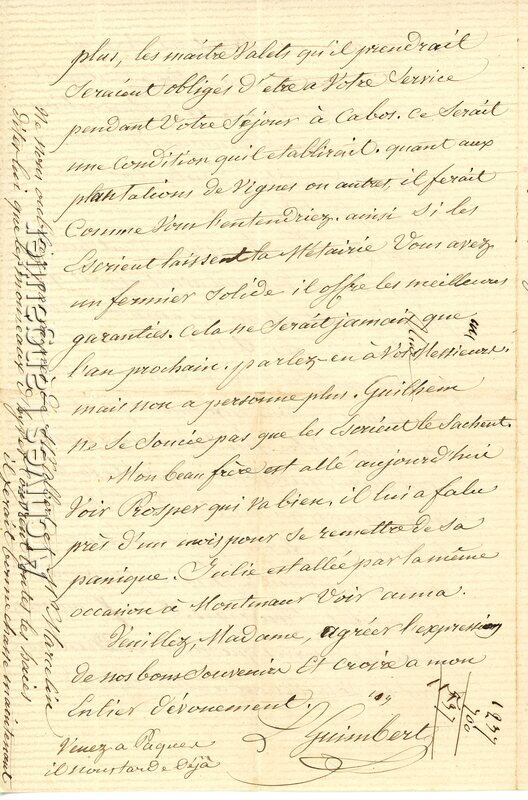 plus, les maitre Valets qu'il prendrait
Seraient obligés d'etre a Votre Service
pendant Votre Séjour à Cabos. ce Serait
une Condition qu'il etablirait. quant aux
plantations de Vignes ou autres, il ferait
Comme Vous l'entendriez. ainsi Si les
Escrient laissent la Métairie Vous avez
un fermier Solide il offre les meilleures
garanties. Cela ne Serait jamais que
l'an prochain. parlez-en à Vos Messieurs
mais non a personne plus. Guilhem
ne se Soucie pas que les Escrient le Sachent.
Mon beau frère est allé aujourd'hui
Voir Prosper qui Va bien, il lui a falu
près d'un mois pour se remettre de sa
panique. Julie est allée par la même
occasion à Montmaur Voir anna.
Veuillez, Madame, agréer l'expression
de nos bons Souvenirs Et croire a mon
Entier dévouement.
Guimbert
Venez a Paques
il nous tarde Déjà
Ne nous
dites lui que les
il serait bonne chasse maintenant